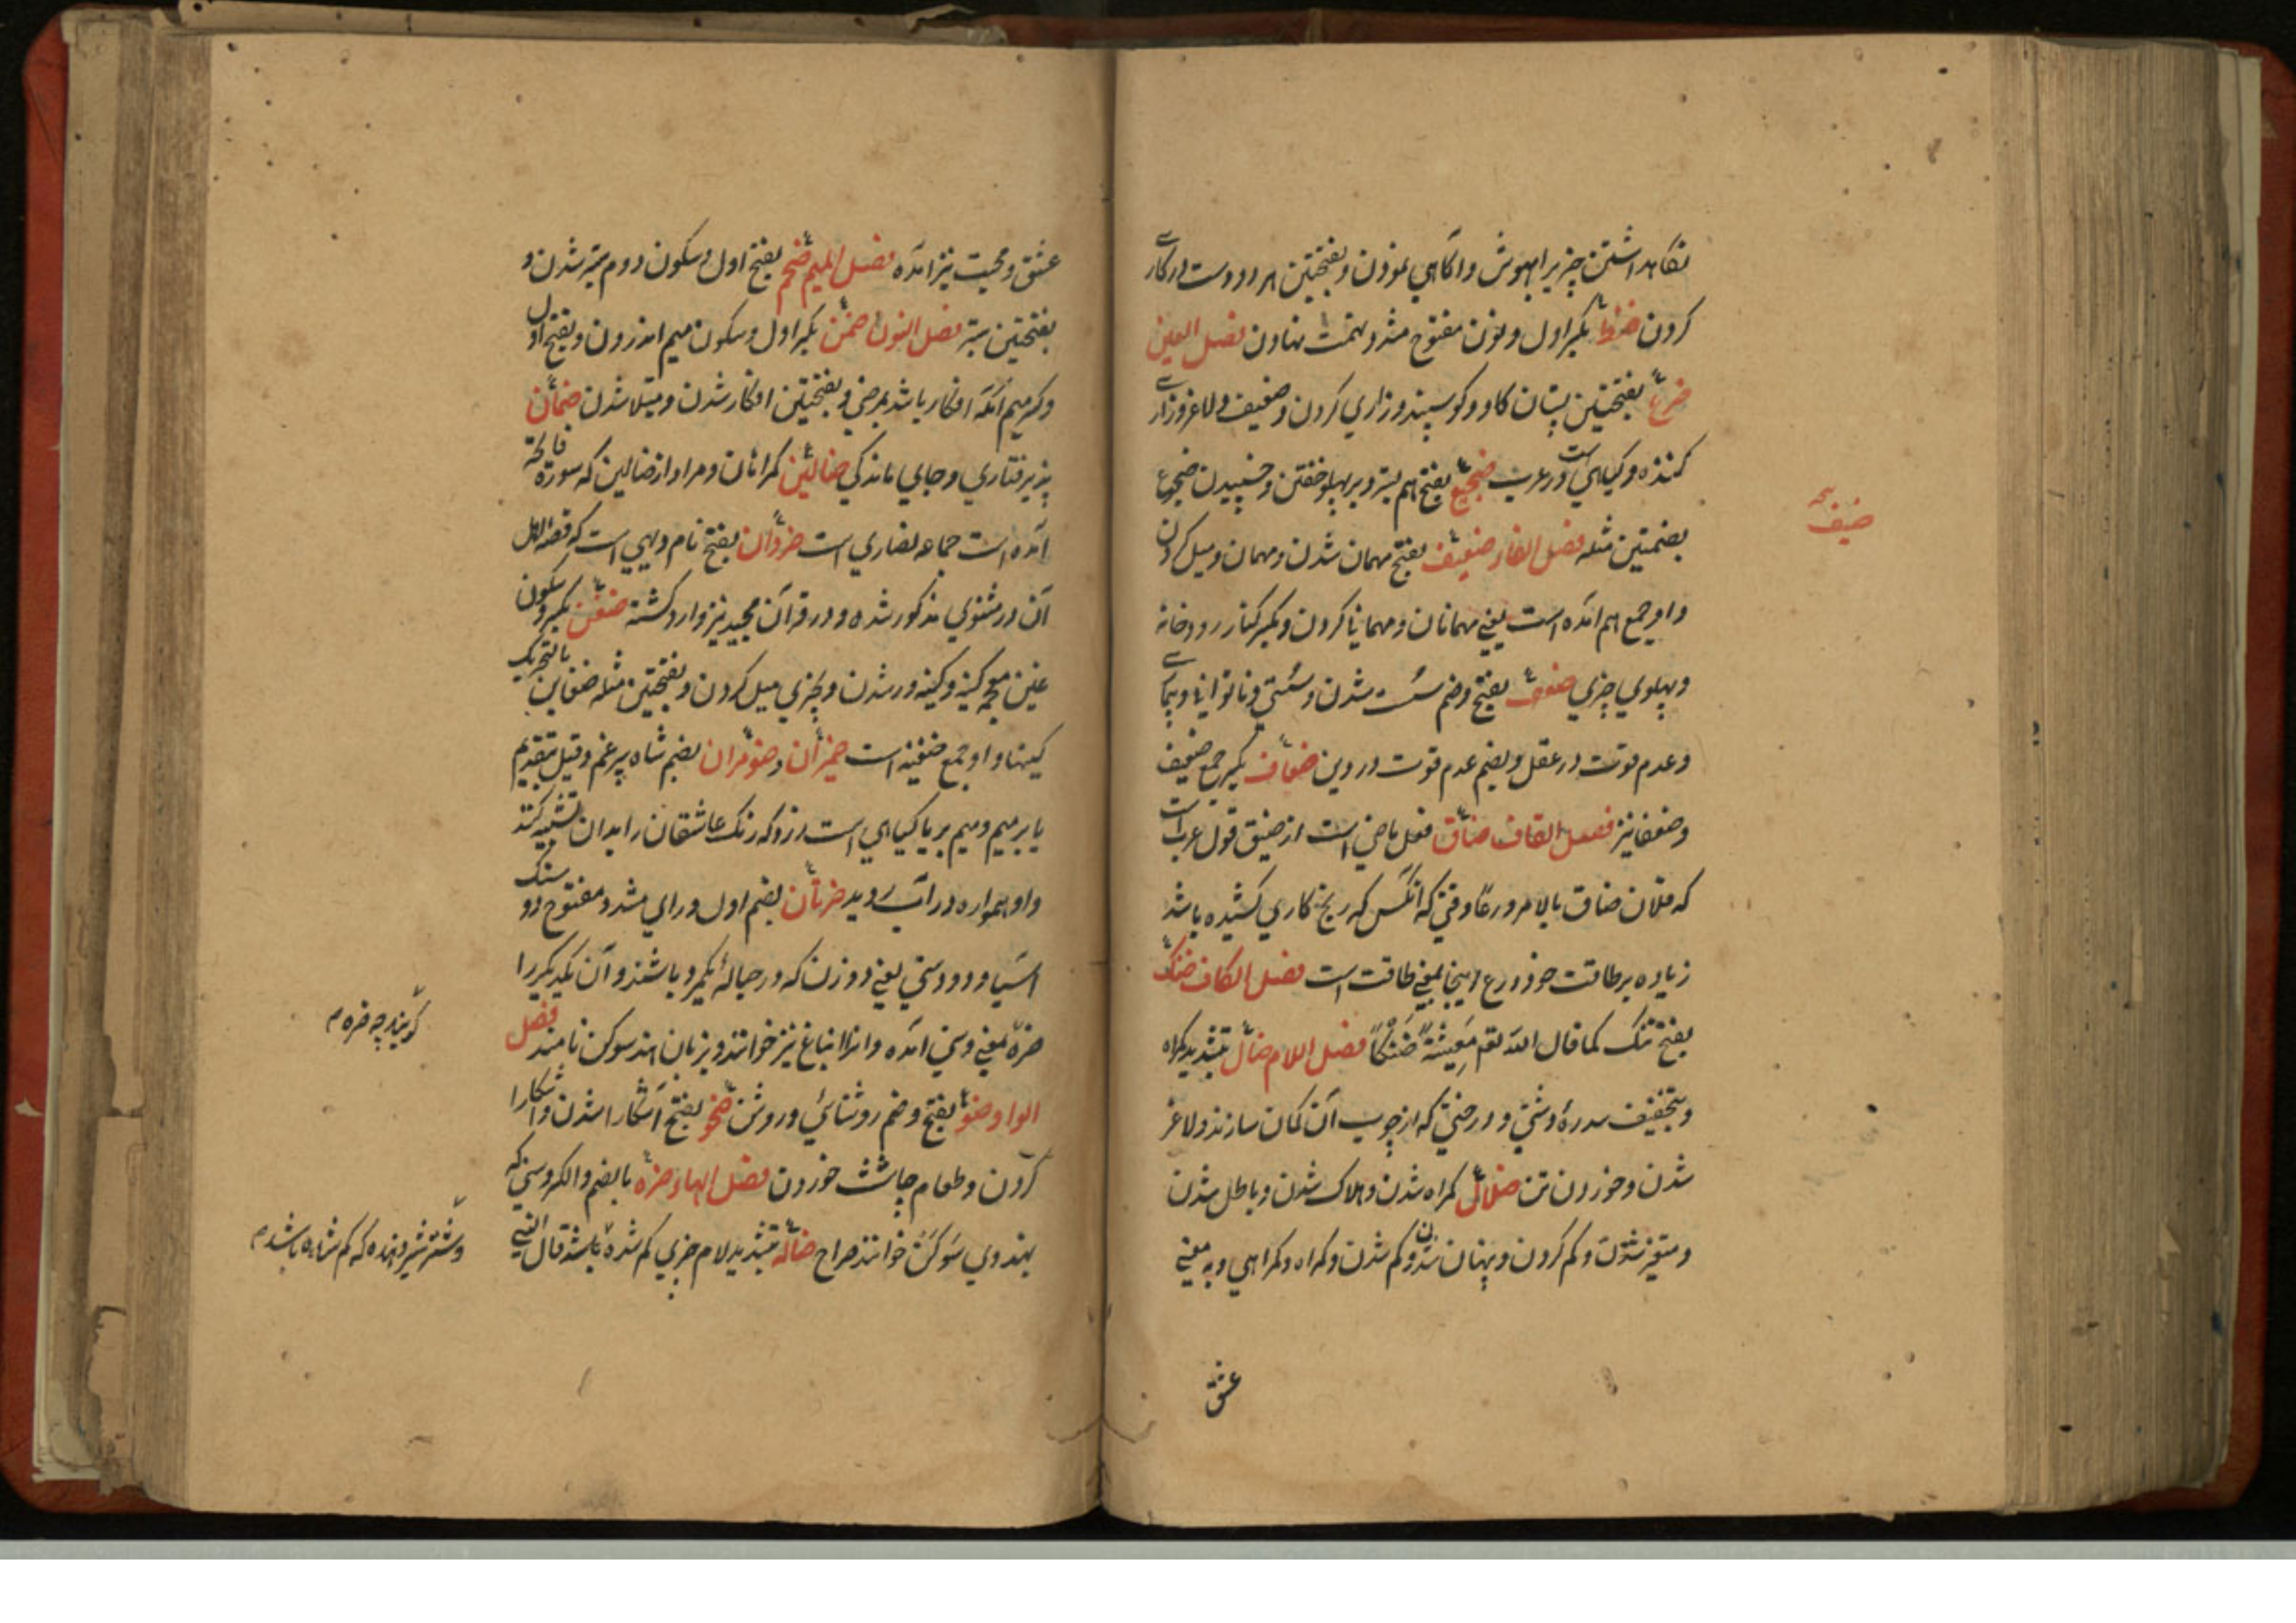 نکاهداشتن چیزیرا بهوش واکاهی نمودن وبفتحتین هر دو دست در کاری
کردن ضنط بکسر اول ونون مفتوح مشدد تهمت نهادن فصل العین
ضرع بفتحتین پستان کاو وکوسپند وزاری کردن وضعیف ولاغر وزاری
کننده وکیاهی است در عرب ضجیع بفتح هم بستر وبر پهلو خفتن وخسپیدن ضجوع
بضمتین مثله فصل الفاء ضیف بفتح مهمان شدن ومهمان ومیل کردن
ضیف
واو جمع هم امده است یعنی مهمانان ومهمانیا کردن وبکسر کنار رودخانه
وپهلوی چیزی ضعف بفتح وضم سست شدن وسستی وناتوانی وبیماری
وعدم قوت در عقل وبضم عدم قوت در دین ضعاف بکسر جمع ضعیف
وضعفا نیز فصل القاف ضاق فعل ماضی است از ضیق قول عرب است
که فلان ضاق بالامر ورعا وقتی که انکس که رنج کاری کشیده باشد
زیاده بر طاقت خود ورع اینجا بمعنی طاقت است فصل الکاف ضنک
بفتح تنک کما قال الله تعم مَعِیشَةً ضَنْکاً فصل اللام ضال بتشدید کمراه
وبتخفیف سدرهٔ دشتی ودرختی که از چوب آن کمان سازند ولاغر
شدن وخوردن تن ضلال کمراه شدن وهلاک شدن وباطل شدن
ومتحیر شدن وکم کردن وپنهان شدن وکم شدن وکمراه وکمراهی وبه معنی
عشق
عشق ومحبت نیز امده فصل المیم ضخم بفتح اول وسکون دوم ستبر شدن و
بفتحتین ستبر فصل النون ضمن بکسر اول وسکون میم اندرون وبفتح اول
وکسر میم انکه افکار باشد بمرضی وبفتحتین افکار شدن ومبتلا شدن ضمان
پذیرفتاری وجای ماندکی ضالین کمراهان ومراد از ضالین که سورة فاتحة
امده است جماعه نصاری است ضروان بفتح نام دیهی است که قصه اهل
آن در مثنوی مذکور شده ودر قرآن مجید نیز وارد کشته ضغن بکسر وسکون
غین معجمه کینه وکینه ور شدن وبچیزی میل کردن وبفتحتین مثله ضغاین بالتحریک
کینها واو جمع ضغینه است ضیمران وضومران بضم شاه سپرغم وقیل بتقدیم
یا بر میم ومیم بر یا کیاهی است زرد که رنک عاشقان را بدان تشبیه کنند
واو همواره در آب روید ضرتان بضم اول ورای مشدد مفتوح دو سنک
اسیا ودو وسنی یعنی دو زن که در حبالهٔ یکمرد باشند وآن یکدیکررا
ضره بمعنی وسنی امده وانرا انباغ نیز خوانند وبزبان هند سوکن نامند فصل
کویند چه ضره م
الواو ضو بفتح وضم روشنائی وروشن ضحو بفتح آشکارا شدن واشکارا
کردن وطعام چاشت خوردن فصل الهاء ضره بالضم والکسر وسنی که
بهندوی سَوکَنْ خوانند صراح ضاله بتشدید لام چیزی کم شده باشد قال النبی
وشتر شیر دهنده که کم شده باشد م